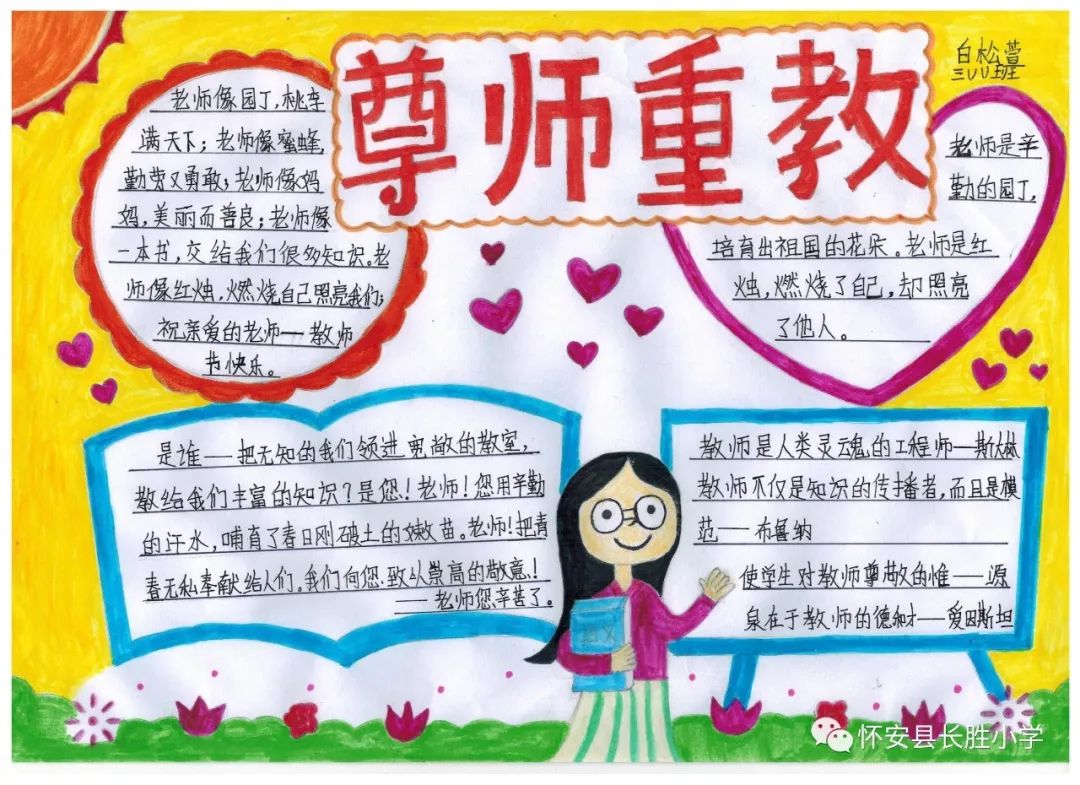 尊师重教
白松萱
三UU班
老师像园丁,桃李
满天下;老师像蜜蜂,
勤劳又勇敢;老师像妈
妈,美丽而善良;老师像
一本书,交给我们很多知识。老
师像红烛,燃烧自己照亮我们;
祝亲爱的老师——教师
节快乐。
老师是辛
勤的园丁,
培育出祖国的花朵。老师是红
烛,燃烧了自己,却照亮
了他人。
是谁——把无知的我们领进宽敞的教室,
教给我们丰富的知识?是您!老师!您用辛勤
的汗水,哺育了春日刚破土的嫩苗。老师!把青
春无私奉献给人们。我们向您致以崇高的敬意!
——老师您辛苦了。
教师是人类灵魂的工程师—斯大林
教师不仅是知识的传播者,而且是模
范——布鲁纳
使学生对教师尊敬的惟一源
泉在于教师的德和才——爱因斯坦
语文
怀安县长胜小学